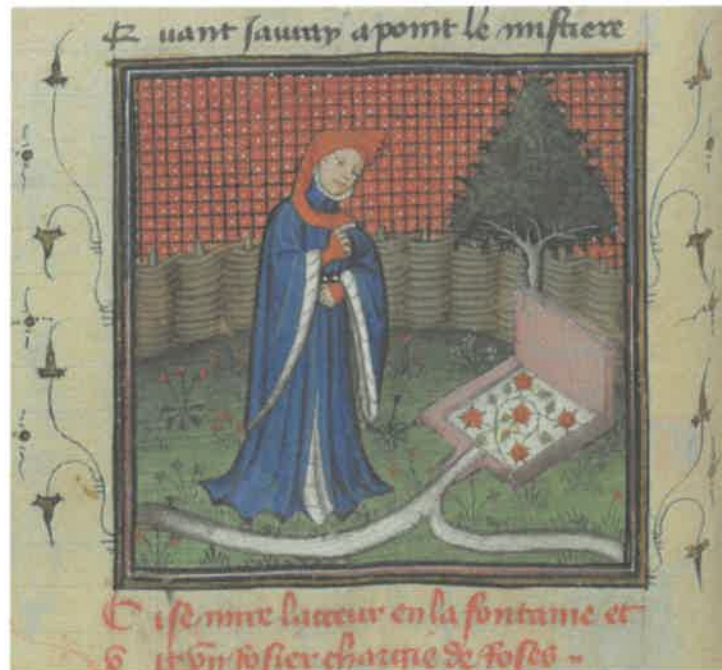 Quant jauray apoint le mistiere
Cise mire lacteur en la fontaine et
voit vn rosier chargie de Roses